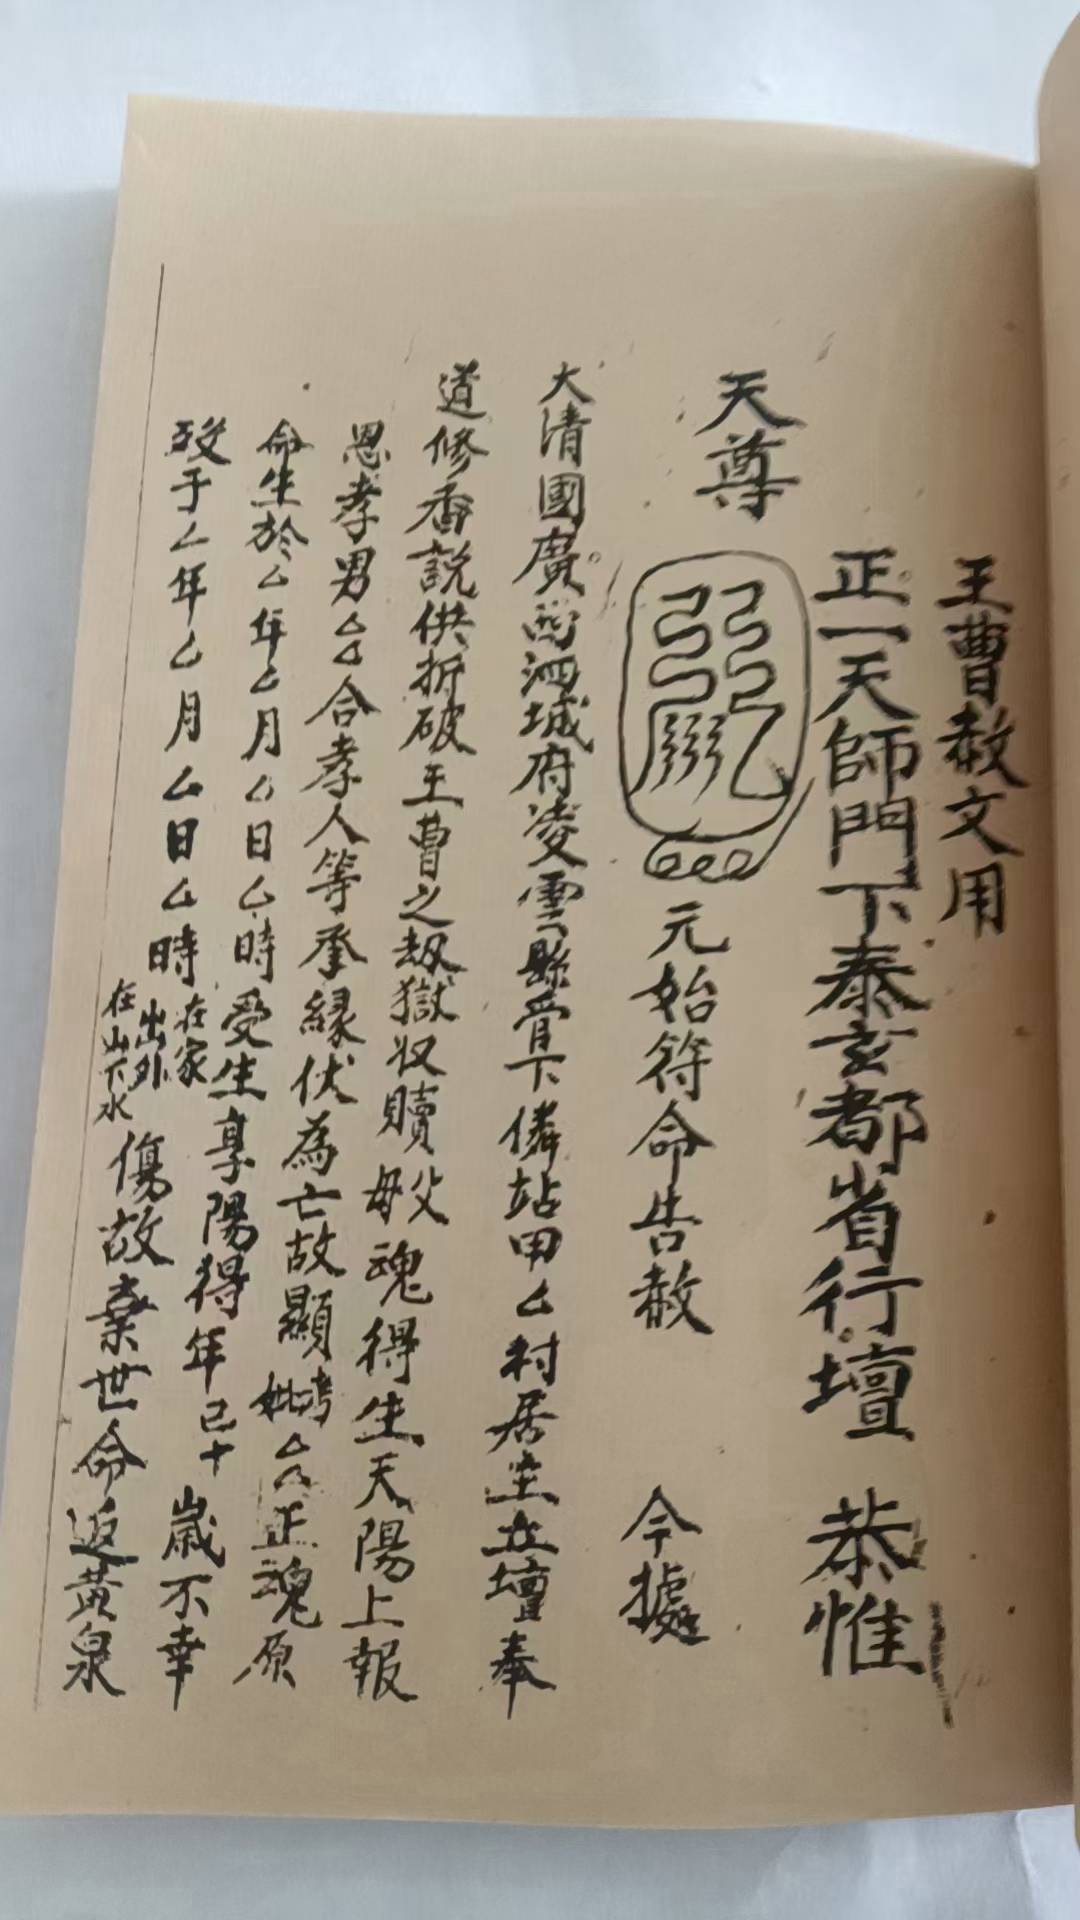 王曹赦文用
正一天師門下泰玄都省行壇 恭惟
天尊
元始符命告赦 今據
大清國廣西泗城府凌雲縣管下隣站甲厶村居坐立壇奉
道修香説供折破王曹之劫獄収贖母父魂得生天陽上報
恩孝男厶厶合孝人等承緣伏為亡故顯妣考厶厶正魂原
命生於厶年厶月厶日厶時受生享陽得年已十歲不幸
歿于厶年厶月厶日厶時在家出外在山下水傷故棄世命返黃泉